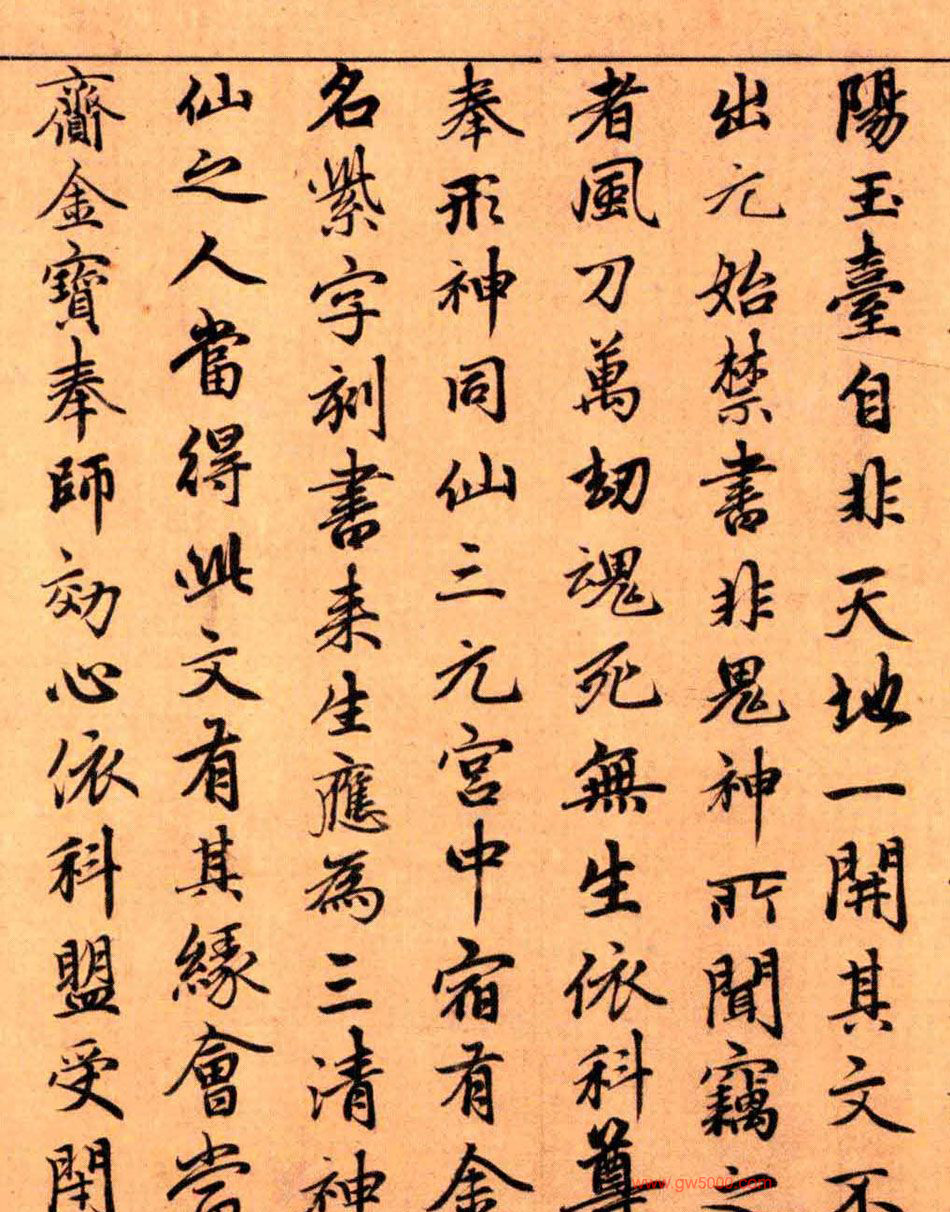 陽玉臺自非天地一開其文不
出元始禁書非鬼神所聞竊之
者風刀萬劫魂死無生依科尊
奉形神同仙三元宮中宿有金
名紫字刻書来生應為三清神
仙之人當得此文有其緣會當
齎金寶奉師効心依科盟受閇
www.gw5000.com